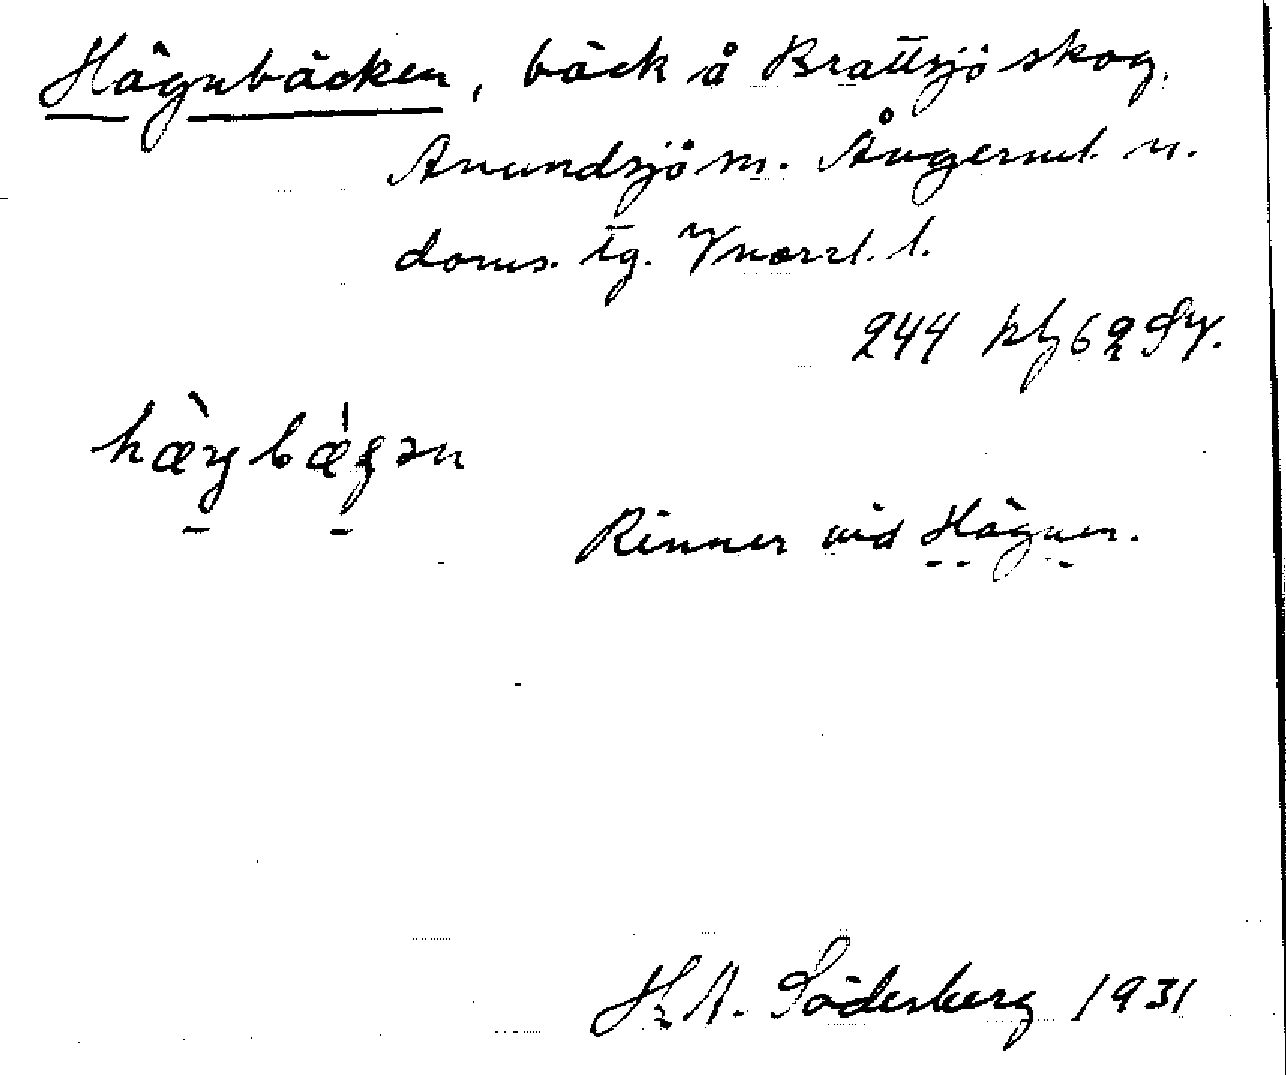 Hägnbäcken, bäck å Brattsjö skog.
Anundsjö sn. Ångerml. n.
doms. tg. Vnorrl. l.
244 SV.
Rinner vid Hägnen.
H. A. Söderberg 1931